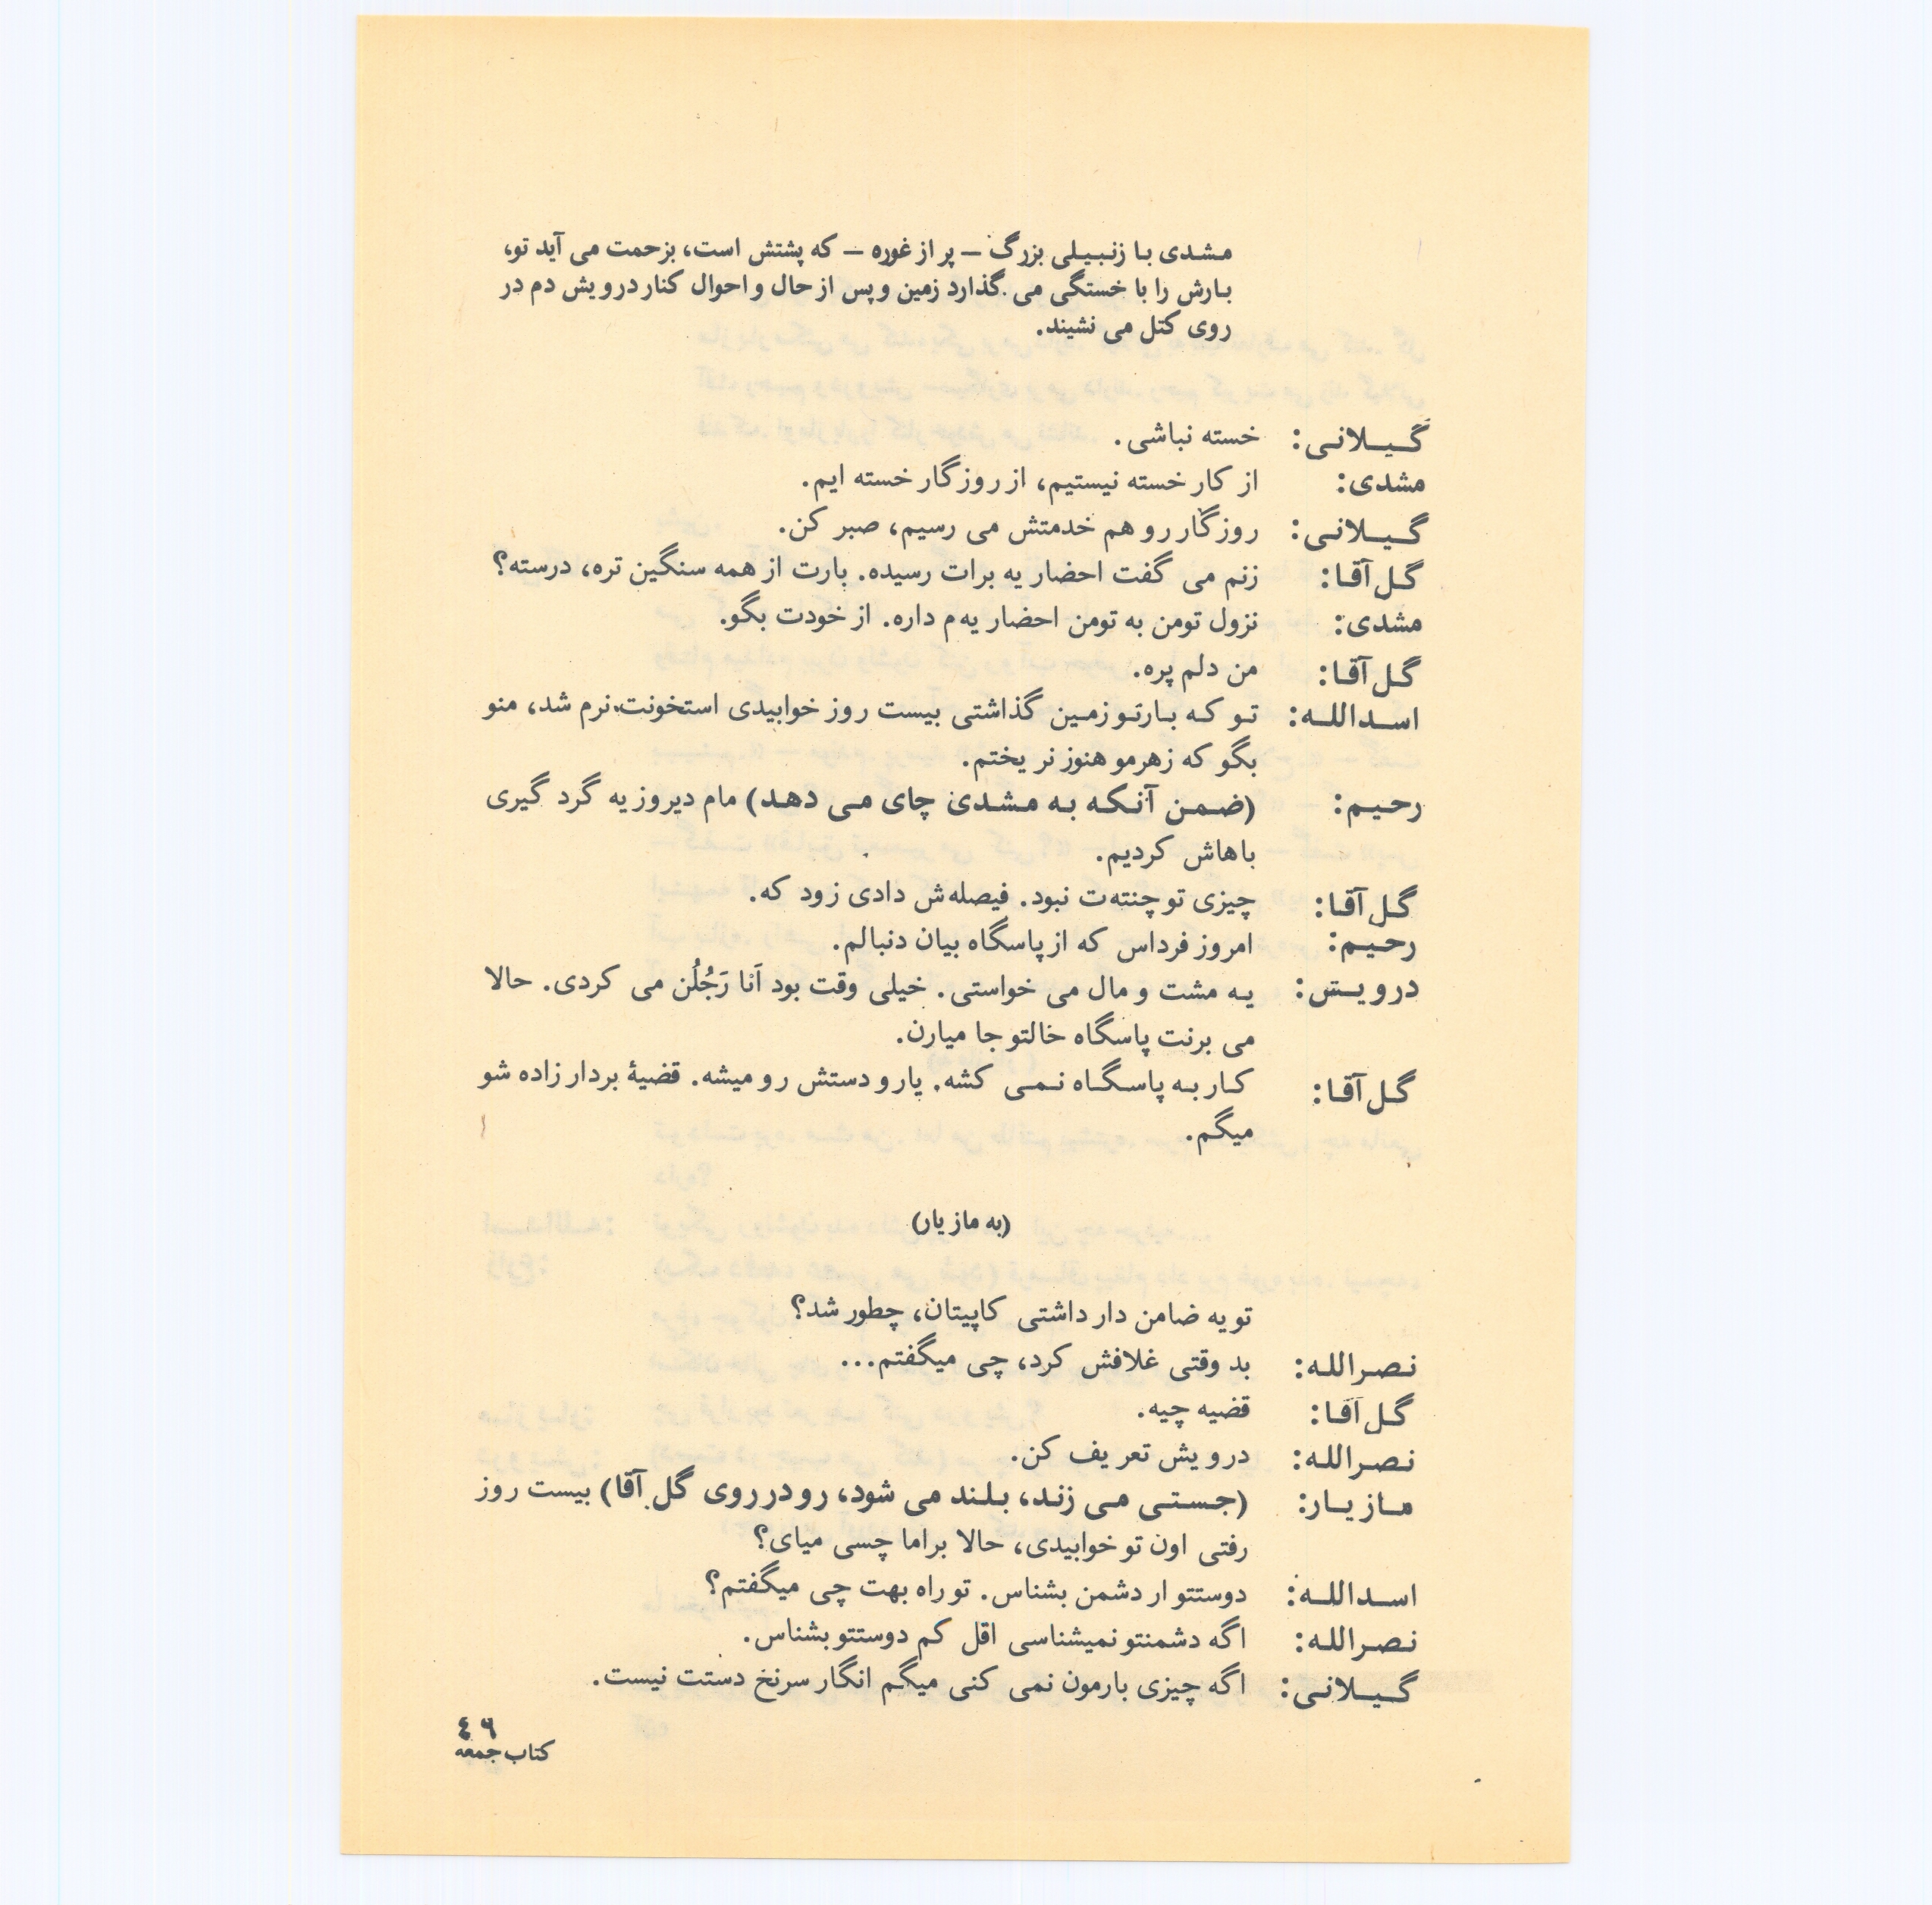 مشدی با زنبیلی بزرگ – پر از غوره – که پشتش است، بزحمت می آید تو،
بارش را با خستگی می گذارد زمین و پس از حال و احوال کنار درویش دم در
روی کتل می نشیند.
گیلانی: خسته نباشی.
مشدی: از کار خسته نیستیم، از روزگار خسته ایم.
گیلانی: روزگار رو هم خدمتش می رسیم، صبر کن.
گل آقا: زنم می گفت احضاریه برات رسیده. بارت از همه سنگین تره، درسته؟
مشدی: نزول تومن به تومن احضاریه م داره. از خودت بگو.
گل آقا: من دلم پره.
اسدالله: تو که بارتو زمین گذاشتی بیست روز خوابیدی استخونت نرم شد، منو
بگو که زهرمو هنوز نریختم.
رحیم: (ضمن آنکه به مشدی چای می دهد) مام دیروز یه گرد گیری
باهاش کردیم.
گل آقا: چیزی تو چنته ت نبود. فیصله ش دادی زود که.
رحیم: امروز فرداس که از پاسگاه بیان دنبالم.
درویش: یه مشت و مال می خواستی. خیلی وقت بود اَنا رَجُلُن می کردی. حالا
می برنت پاسگاه خالتو جا میارن.
گل آقا: کار به پاسگاه نمی کشه. یارو دستش رو میشه. قضیهٔ بردار زاده شو
میگم.
(به مازیار)
تو یه ضامن دار داشتی کاپیتان، چطور شد؟
نصرالله: بد وقتی غلافش کرد، چی میگفتم...
گل آقا: قضیه چیه.
نصرالله: درویش تعریف کن.
مازیار: (جستی می زند، بلند می شود، رو در روی گل آقا) بیست روز
رفتی اون تو خوابیدی، حالا براما چسی میای؟
اسدالله: دوستتو ار دشمن بشناس. تو راه بهت چی میگفتم؟
نصرالله: اگه دشمنتو نمیشناسی اقل کم دوستتو بشناس.
گیلانی: اگه چیزی بارمون نمی کنی میگم انگار سرنخ دستت نیست.
٤٦
کتاب جمعه